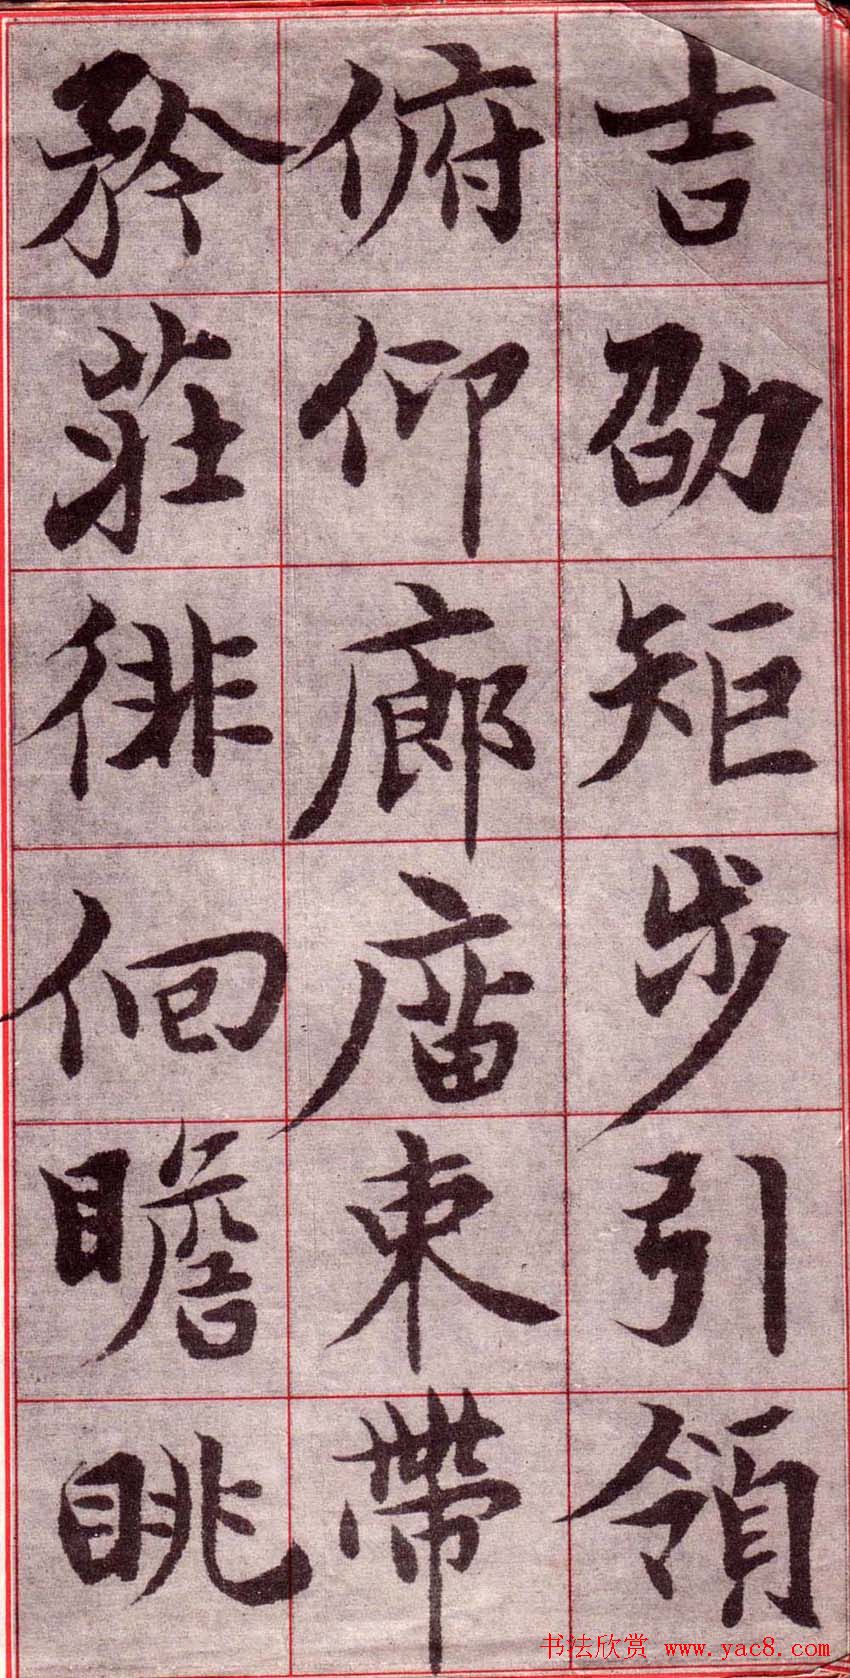 吉劭矩步引領
俯仰廊庿東帶
矜莊徘徊瞻眺
书法欣赏 www.yac8.com